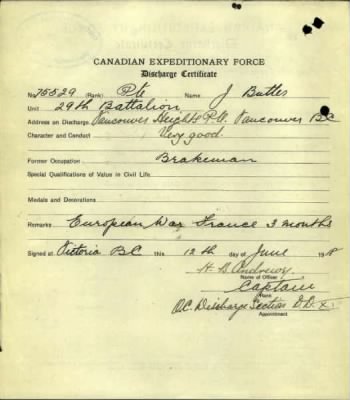 CANADIAN EXPEDITIONARY FORCE
Discharge Certificate
No. 75529 (Rank) Pte Name J Butler
Unit 29th Battalion
Address on Discharge Vancouver Heights P.O. Vancouver BC
Character and Conduct Very good.
Former Occupation Brakeman
Special Qualifications of Value in Civil Life
Medals and Decorations
Remarks European War France 3 months
Signed at Victoria BC this 12th day of June 191
H. B. Andrews
Name of Officer
Captain
Rank
O.C. Discharge Section D.D.
Appointment